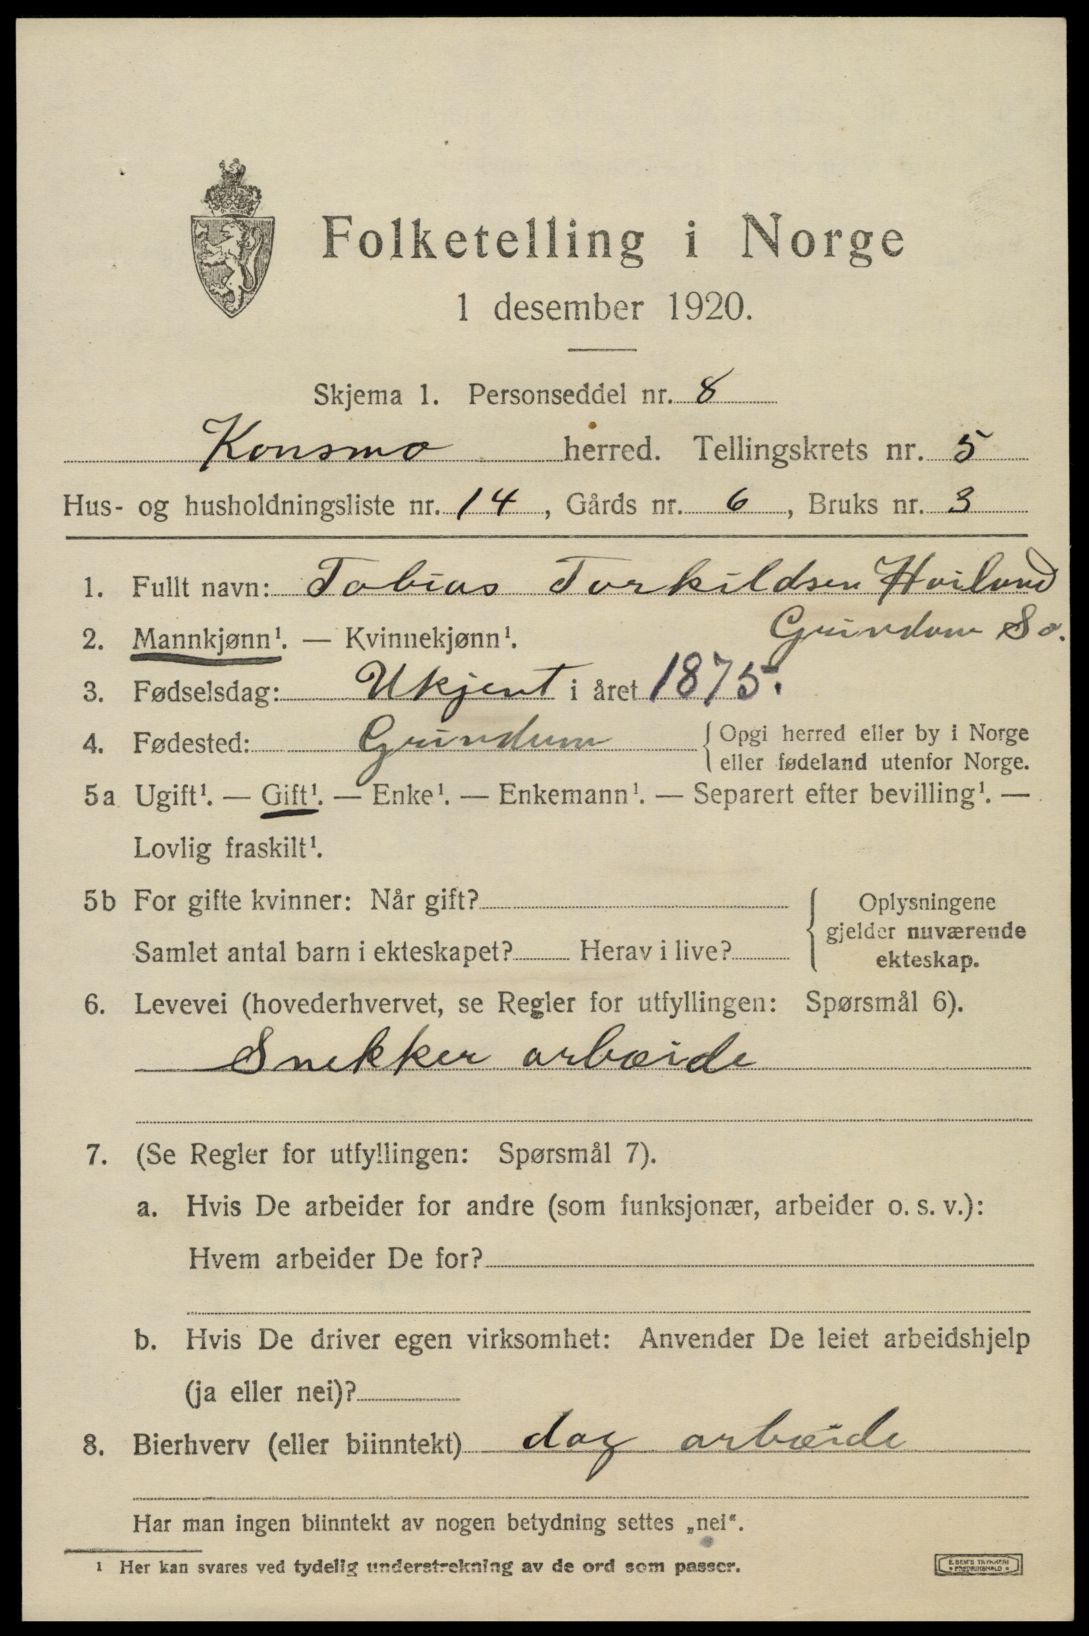 Folketelling i Norge
1 desember 1920.
Skjema 1. Personseddel nr. 8
Konsmo herred. Tellingskrets nr. 5
Hus- og husholdningsliste nr. 14, Gårds nr. 6, Bruks nr. 3
1. Fullt navn: Tobias Torkildsen Hoiland
2. Mannkjønn¹. — Kvinnekjønn¹. Grindum So.
3. Fødselsdag: Ukjent i året 1875.
4. Fødested: Grindum { Opgi herred eller by i Norge
eller fødeland utenfor Norge.
5a Ugift¹. — Gift¹. — Enke¹. — Enkemann¹. — Separert efter bevilling¹. —
Lovlig fraskilt¹.
5b For gifte kvinner: Når gift? { Oplysningene
gjelder nuværende
Samlet antal barn i ekteskapet? Herav i live? ekteskap.
6. Levevei (hovederhvervet, se Regler for utfyllingen: Spørsmål 6).
Snekker arbæide
7. (Se Regler for utfyllingen: Spørsmål 7).
a. Hvis De arbeider for andre (som funksjonær, arbeider o. s. v.):
Hvem arbeider De for?
b. Hvis De driver egen virksomhet: Anvender De leiet arbeidshjelp
(ja eller nei)?
8. Bierhverv (eller biinntekt) dag arbæide
Har man ingen biinntekt av nogen betydning settes „nei“.
¹ Her kan svares ved tydelig understrekning av de ord som passer.